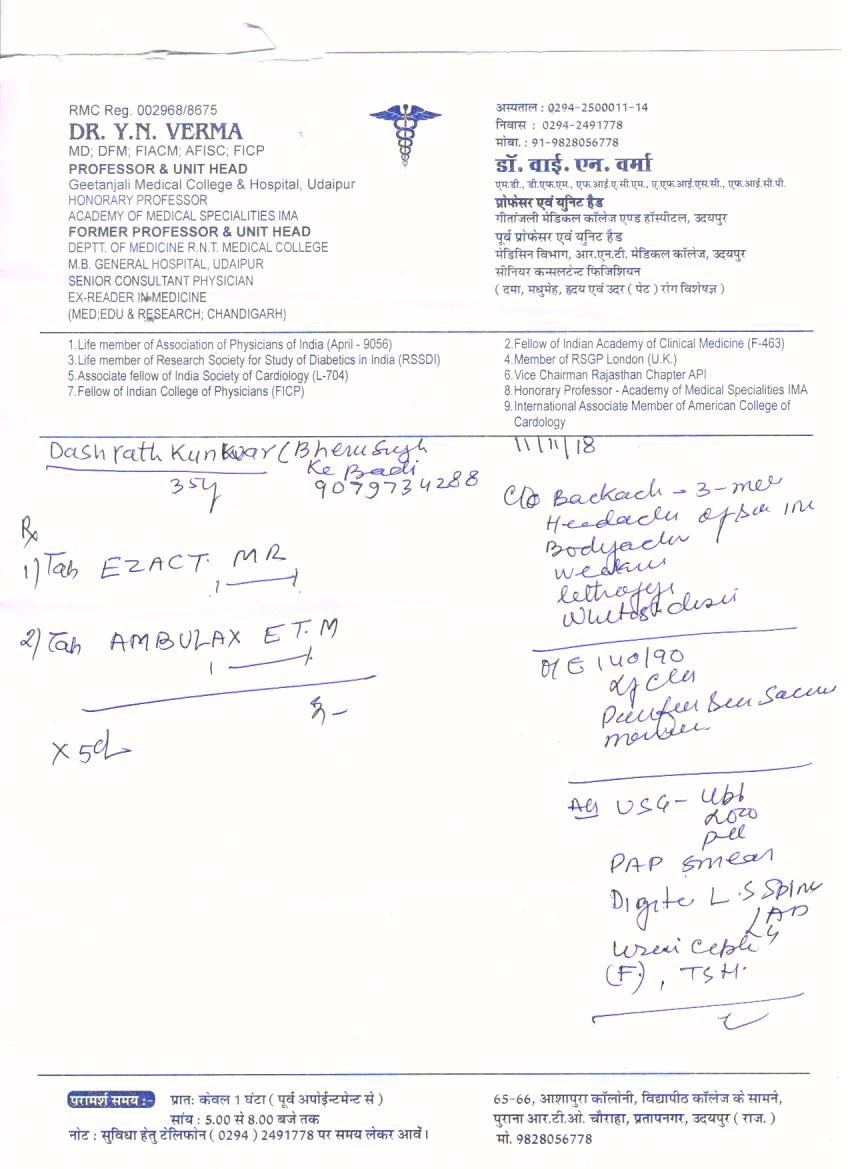 RMC Reg. 002968/8675
DR. Y.N. VERMA
MD; DFM; FIACM; AFISC; FICP
PROFESSOR & UNIT HEAD
Geetanjali Medical College & Hospital, Udaipur
HONORARY PROFESSOR
ACADEMY OF MEDICAL SPECIALITIES IMA
FORMER PROFESSOR & UNIT HEAD
DEPTT. OF MEDICINE R.N.T. MEDICAL COLLEGE
M.B. GENERAL HOSPITAL, UDAIPUR
SENIOR CONSULTANT PHYSICIAN
EX-READER IN MEDICINE
(MED;EDU & RESEARCH; CHANDIGARH)
अस्पताल : 0294-2500011-14
निवास : 0294-2491778
मोबा. : 91-9828056778
डॉ. वाई. एन. वर्मा
एम.डी., डी.एफ.एम., एफ.आई.ए.सी.एम., ए.एफ.आई.एस.सी., एफ.आई.सी.पी.
प्रोफेसर एवं युनिट हैड
गीतांजली मेडिकल कॉलेज एण्ड हॉस्पीटल, उदयपुर
पूर्व प्रोफेसर एवं युनिट हैड
मेडिसिन विभाग, आर.एन.टी. मेडिकल कॉलेज, उदयपुर
सीनियर कन्सलटेन्ट फिजिशियन
( दमा, मधुमेह, हृदय एवं उदर ( पेट ) रोग विशेषज्ञ )
1.Life member of Association of Physicians of India (April - 9056)
3.Life member of Research Society for Study of Diabetics in India (RSSDI)
5.Associate fellow of India Society of Cardiology (L-704)
7.Fellow of Indian College of Physicians (FICP)
2.Fellow of Indian Academy of Clinical Medicine (F-463)
4.Member of RSGP London (U.K.)
6.Vice Chairman Rajasthan Chapter API
8.Honorary Professor - Academy of Medical Specialities IMA
9.International Associate Member of American College of
Cardology
Dashrath Kunkwar (Bherusingh
Ke Badi
35y 9079734288
Rx
1) Tab EZACT. MR
1 — 1
2) Tab AMBULAX E T.M
1 — 1
3 -
x 5d
11/11/18
C/o Backach - 3-
Headache
Bodyache
lethargy
O/E 140/90
Adv USG -
PAP smear
L.S Spine
(F), TSH.
परामर्श समय :- प्रातः केवल 1 घंटा ( पूर्व अपोईन्टमेन्ट से )
सांय : 5.00 से 8.00 बजे तक
नोट : सुविधा हेतु टेलिफोन ( 0294 ) 2491778 पर समय लेकर आवें।
65-66, आशापुरा कॉलोनी, विद्यापीठ कॉलेज के सामने,
पुराना आर.टी.ओ. चौराहा, प्रतापनगर, उदयपुर ( राज. )
मो. 9828056778